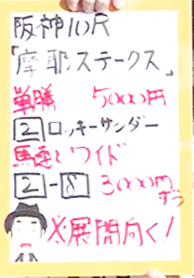 阪神10R
「摩耶ステークス」
単勝 5000円
2 ロッキーサンダー
馬連とワイド
2-8 3000円ずつ
※展開向く!